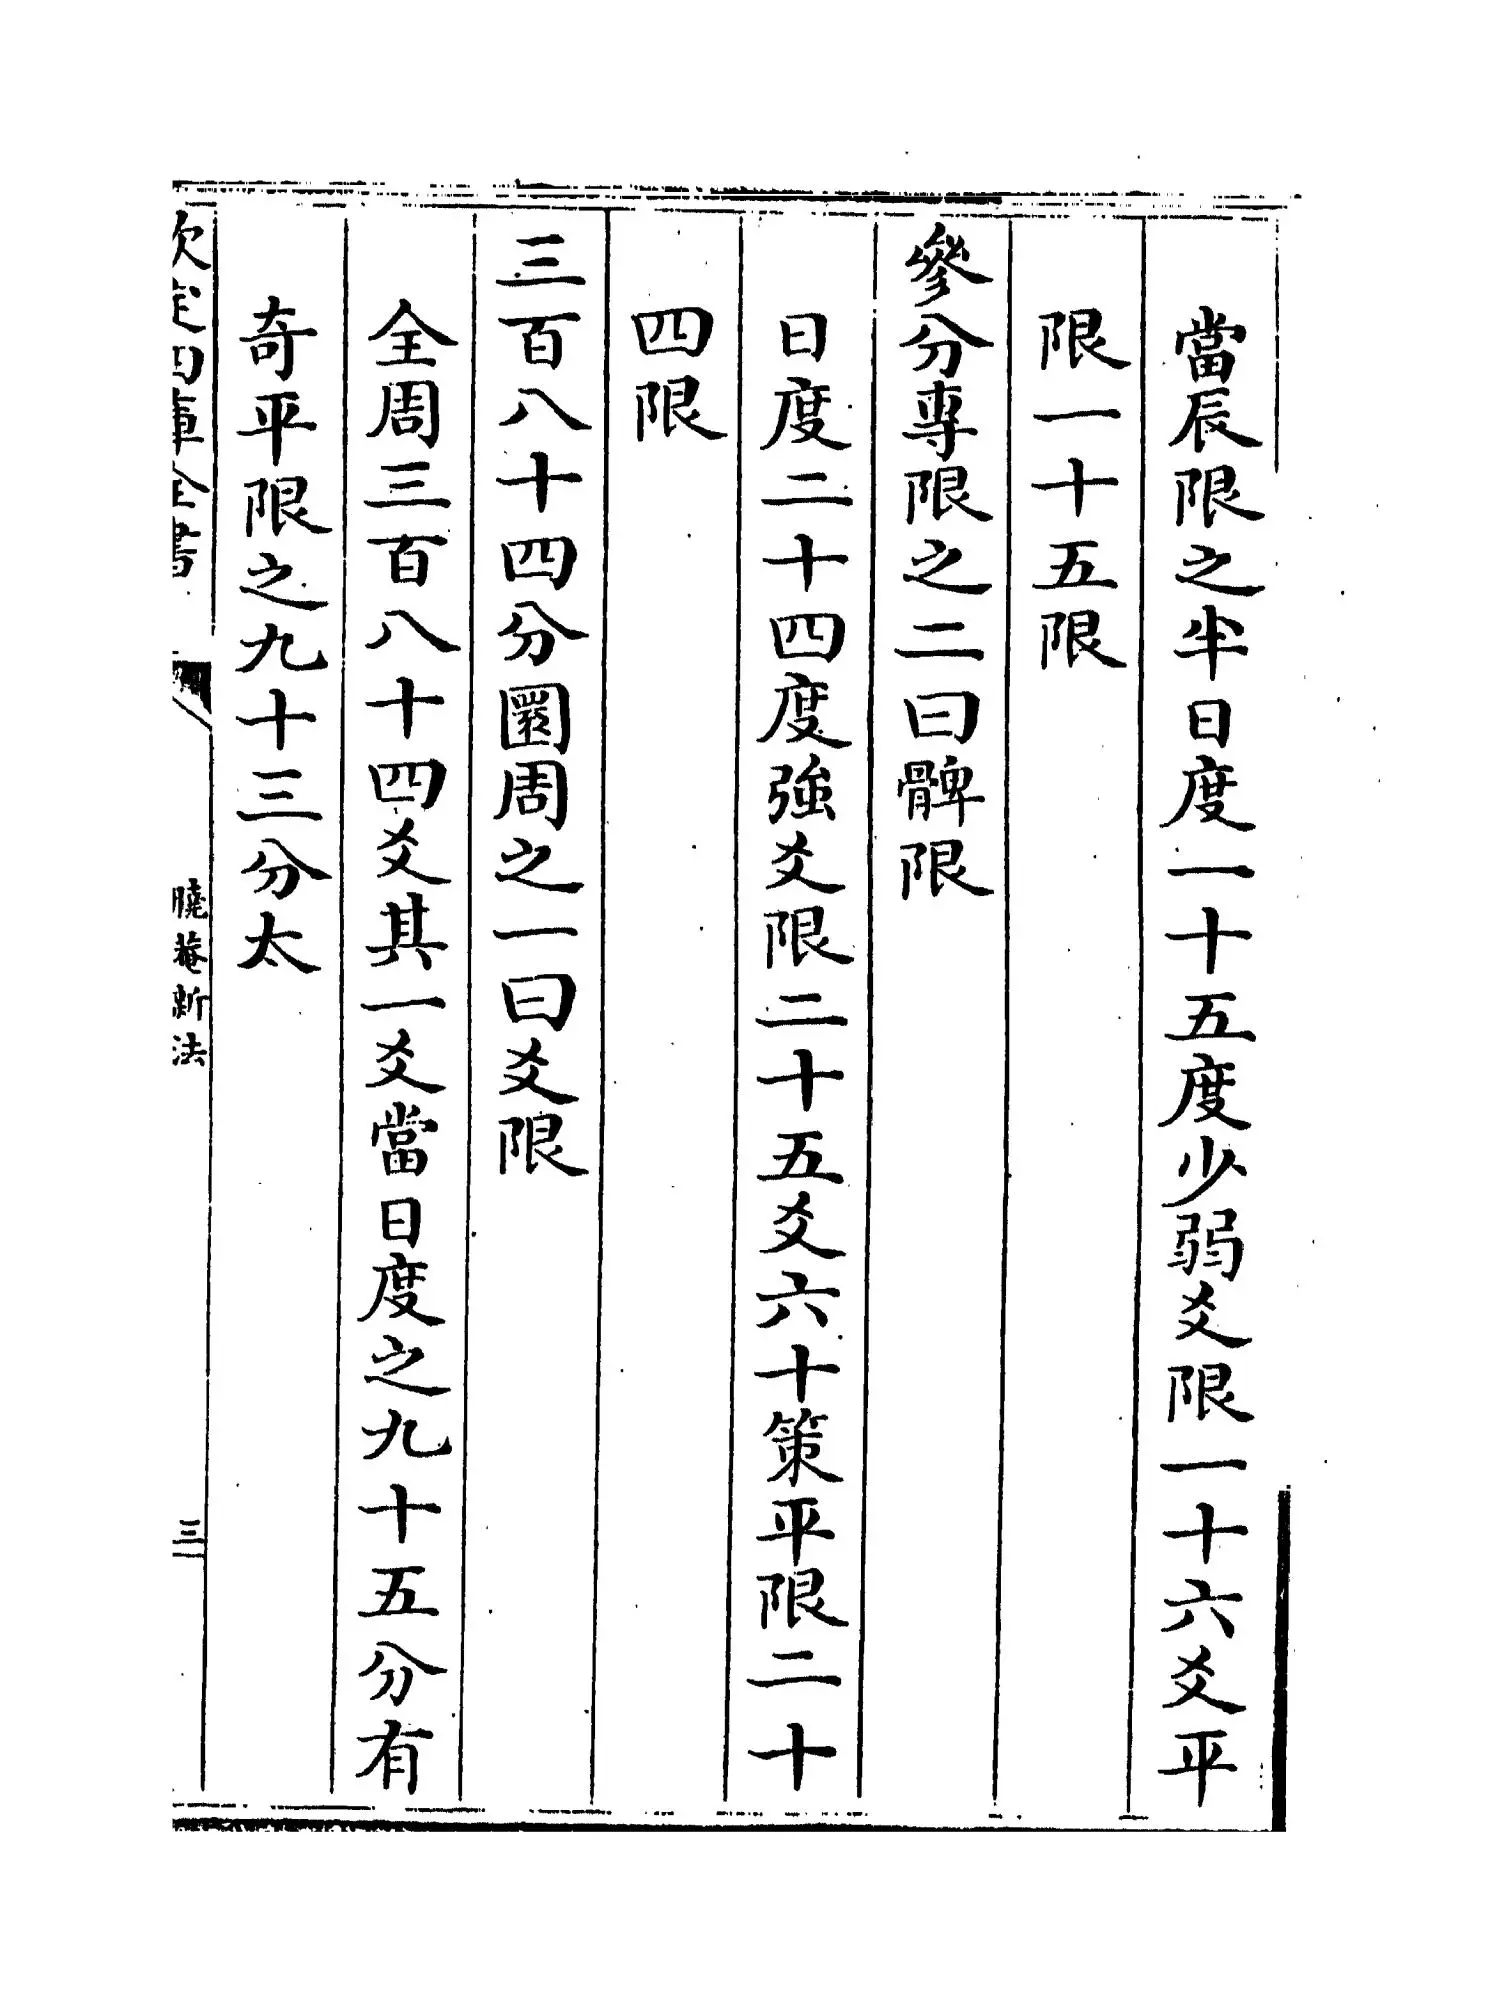 當辰限之半日度一十五度少弱爻限一十六爻平
限一十五限
參分專限之二曰髀限
日度二十四度強爻限二十五爻六十策平限二十
四限
三百八十四分圜周之一曰爻限
全周三百八十四爻其一爻當日度之九十五分有
奇平限之九十三分太
欽定四庫全書
曉菴新法
三